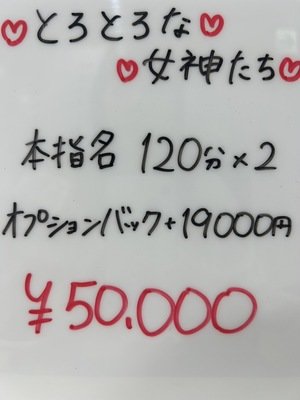 ♥とろとろな♥
♥女神たち♥
本指名 120分×2
オプションバック+19000円
¥50.000